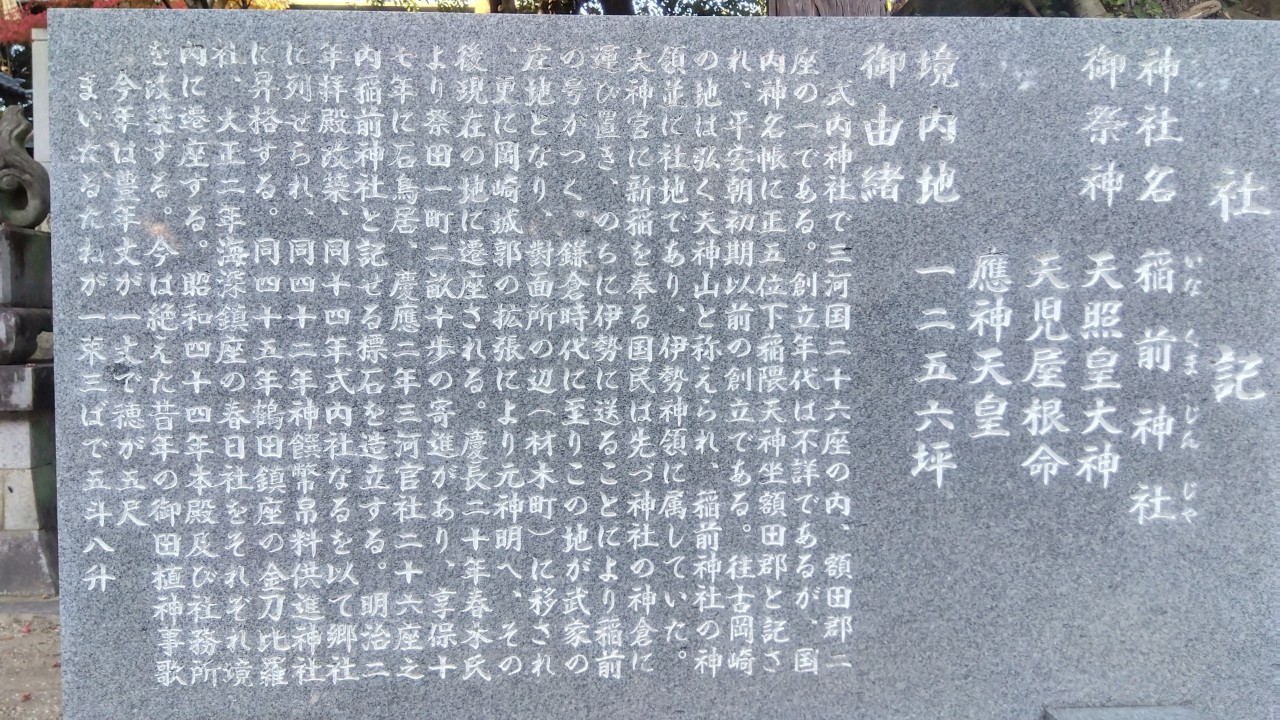 社記
神社名 稲前神社
いなくまじんじや
御祭神 天照皇大神
天児屋根命
應神天皇
境内地 一二五六坪
御由緒
式内神社で三河国二十六座の内、額田郡二
座の一である。創立年代は不詳であるが、国
内神名帳に正五位下稲隈天神坐額田郡と記さ
れ、平安朝初期以前の創立である。往古岡崎
の地は弘く天神山と称えられ、稲前神社の神
領並に社地であり、伊勢神領に属していた。
大神宮に新稲を奉る国民は先づ神社の神倉に
運び置き、のちに伊勢に送ることにより稲前
の号がつく。鎌倉時代に至りこの地が武家の
庄地となり、對面所の辺(材木町)に移され
、更に岡崎城郭の拡張により元神明へ、その
後現在の地に遷座される。慶長二十年春水氏
より祭田一町二畝十歩の寄進があり、享保十
七年に石鳥居、慶應二年三河官社二十六座之
内稲前神社と記せる標石を造立する。明治二
年拝殿改築、同十四年式内社なるを以て郷社
に列せられ、同四十二年神饌幣帛料供進神社
に昇格する。同四十五年鶴田鎮座の金刀比羅
社、大正二年海深鎮座の春日社をそれぞれ境
内に遷座する。昭和四十四年本殿及び社務所
を改築する。今は絶えた昔年の御田植神事歌
今年は豊年丈が一丈で穂が五尺
まいたるたねが一束三ばで五斗八升